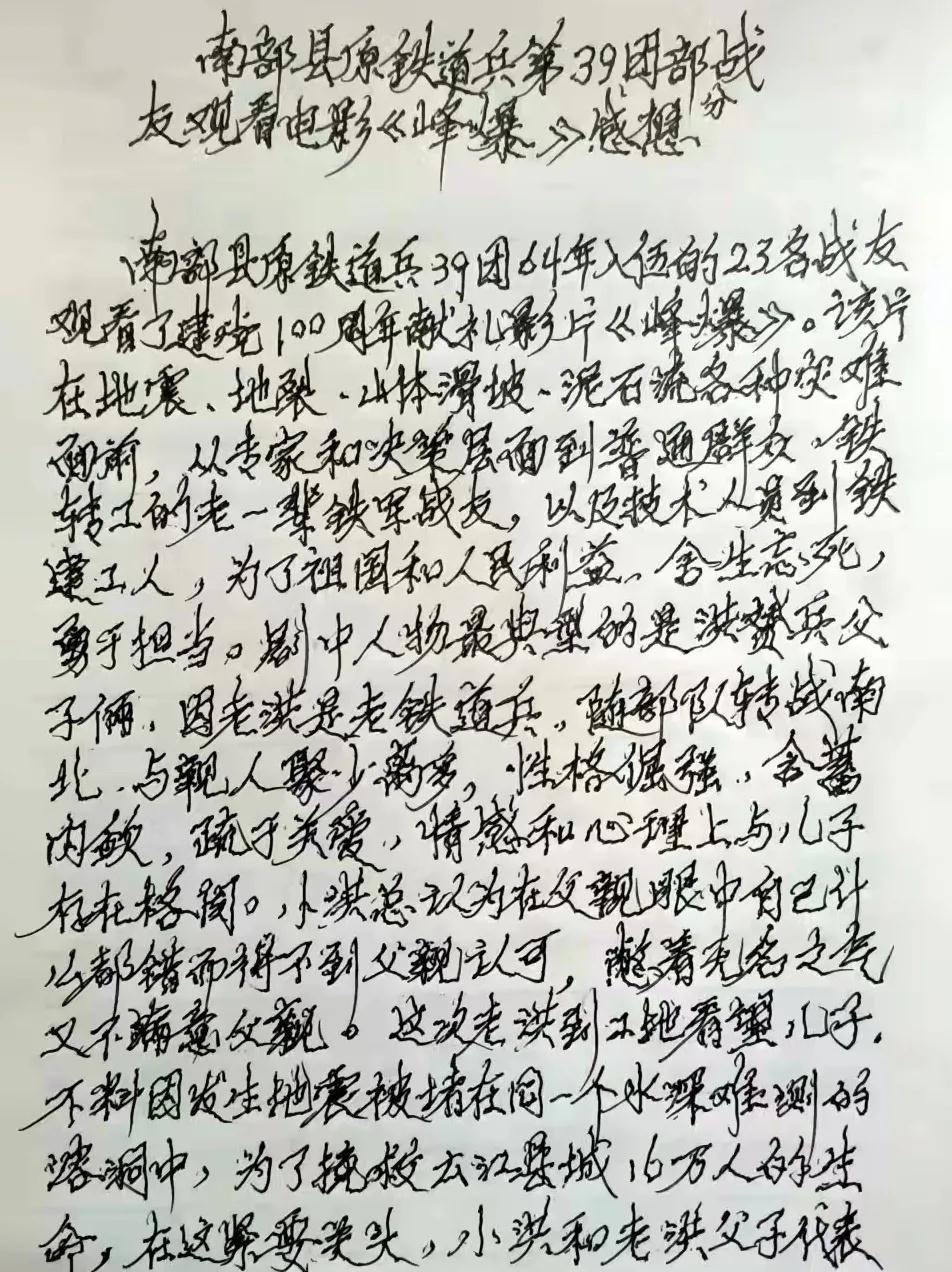 南部县原铁道兵第39团部分战
友观看电影《峰爆》感想
南部县原铁道兵39团64年入伍的23名战友
观看了建党100周年献礼影片《峰爆》。该片
在地震、地裂、山体滑坡、泥石流各种灾难
面前，从专家和决策层面到普通群众、铁
转工的老一辈铁军战友，以及技术人员到铁
建工人，为了祖国和人民利益、舍生忘死，
勇于担当。剧中人物最典型的是洪赞兵父
子俩、因老洪是老铁道兵，随部队转战南
北、与亲人聚少离多，性格倔强、含蓄
内敛，疏于关爱，情感和心理上与儿子
存在格阂。小洪总认为在父亲眼中自己什
么都错而得不到父亲认可，憋着无名之气
又不满意父亲。这次老洪到工地看望儿子，
不料因发生地震被堵在同一个水深难测的
溶洞中，为了挽救云江县城16万人的生
命，在这紧要关头，小洪和老洪父子代表